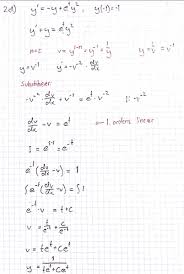 2d) y' = -y + e^t y^2, y(-1) = -1
y' + y = e^t y^2
n=2 v = y^{1-n} = y^{-1} = 1/y y = 1/v = v^{-1}
y = v^{-1} y' = -v^{-2} · dv/dx
Substituer:
-v^{-2} · dv/dx + v^{-1} = e^t · v^{-2} |: -v^{-2}
dv/dx - v = e^t ← 1. ordens lineær
I = e^{S-1} = e^{-t}
e^{-t}(dv/dx - v) = 1
∫e^{-t}(dv/dx - v) = ∫1
e^{-t} · v = t + C
v = t/e^{-t} + C/e^{-t}
v = te^t + Ce^t
y = 1/(te^t + Ce^t)